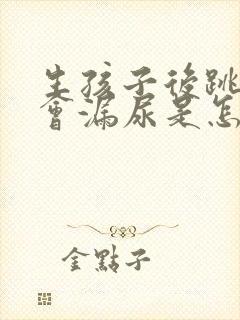 生孩子後跳
會漏尿是怎
金點子